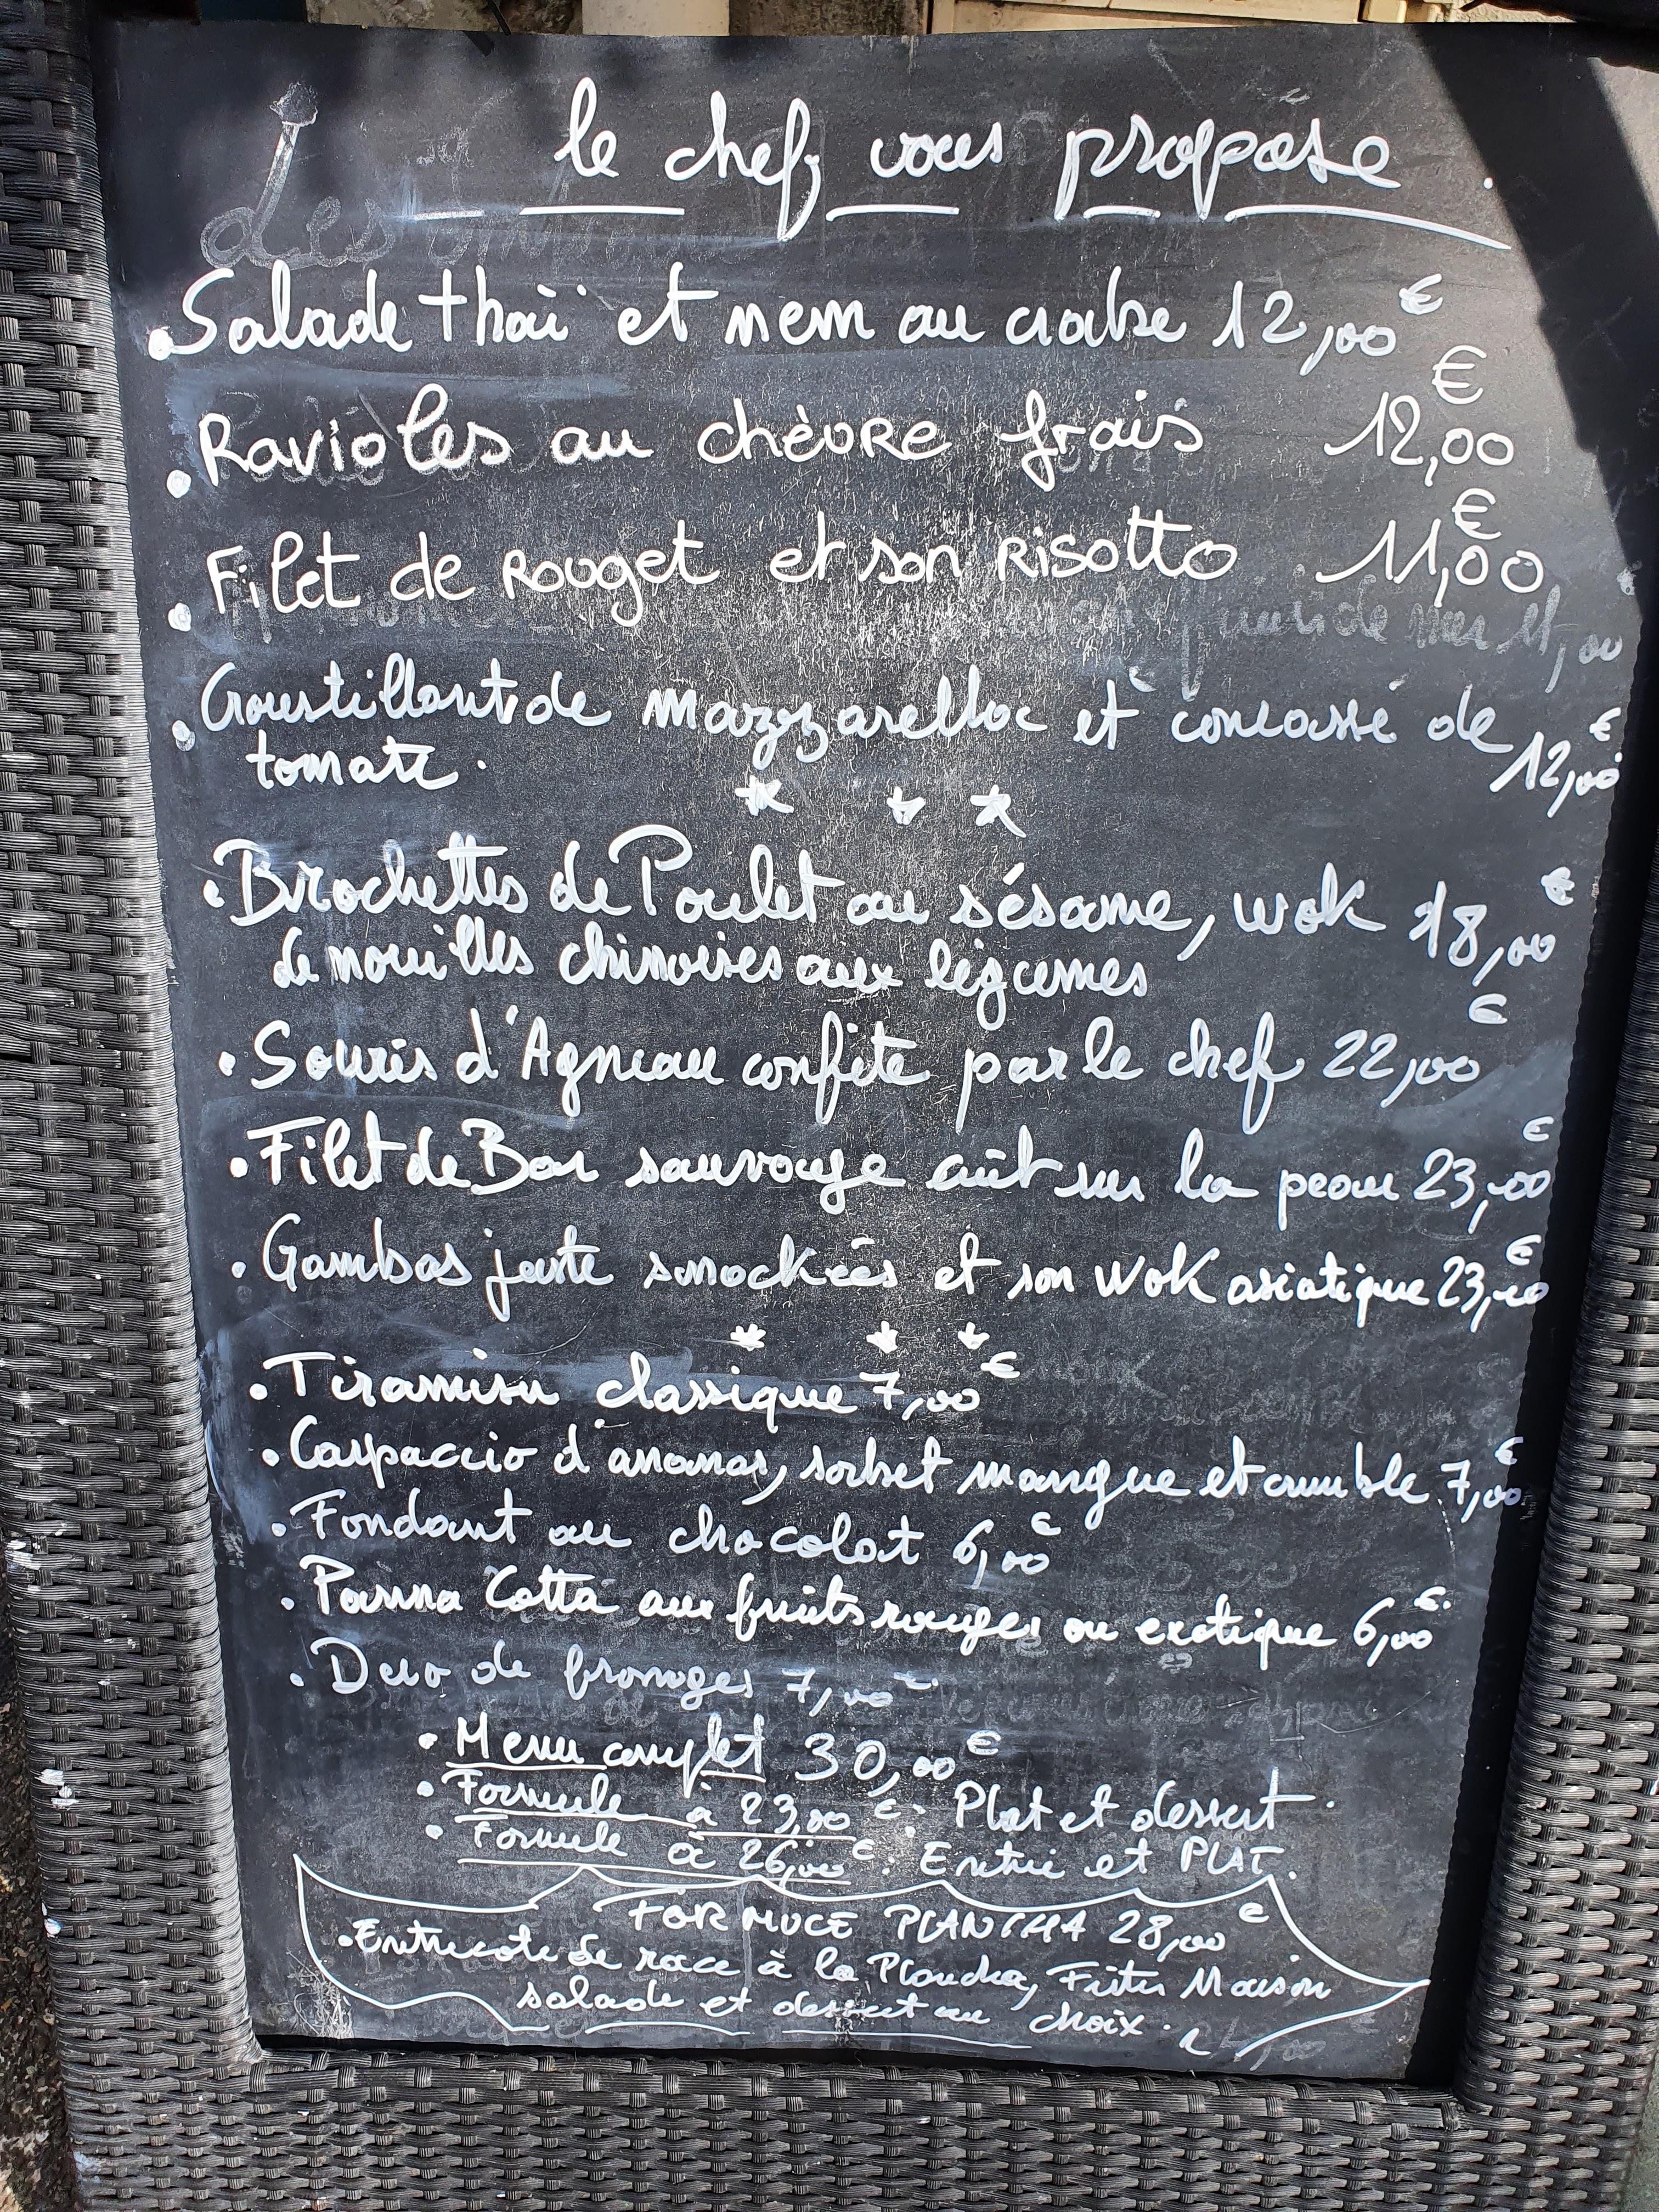 le chef vous propose.
• Salade thaï et nem au crabe 12,00€
• Ravioles au chèvre frais 12,00€
• Filet de Rouget et son Risotto 11,00€
• Croustillant de mozzarella et concassé de
tomate. 12,00€
* * *
• Brochettes de Poulet au sésame, wok 18,00€
de nouilles chinoises aux légumes
• Souris d'Agneau confite par le chef 22,00€
• Filet de Bar sauvage cuit sur la peau 23,00€
• Gambas juste snockées et son wok asiatique 23,00€
* * *
• Tiramisu classique 7,00€
• Carpaccio d'ananas, sorbet mangue et crumble 7,00€
• Fondant au chocolat 6,00€
• Panna Cotta aux fruits rouges ou exotique 6,00€.
• Duo de fromages 7,00€.
• Menu complet 30,00€
• Formule à 23,00€: Plat et dessert.
• Formule à 26,00€: Entrée et PLAT.
FORMULE PLANCHA 28,00€
• Entrecote de race à la Plancha, Frites Maison
salade et dessert au choix.